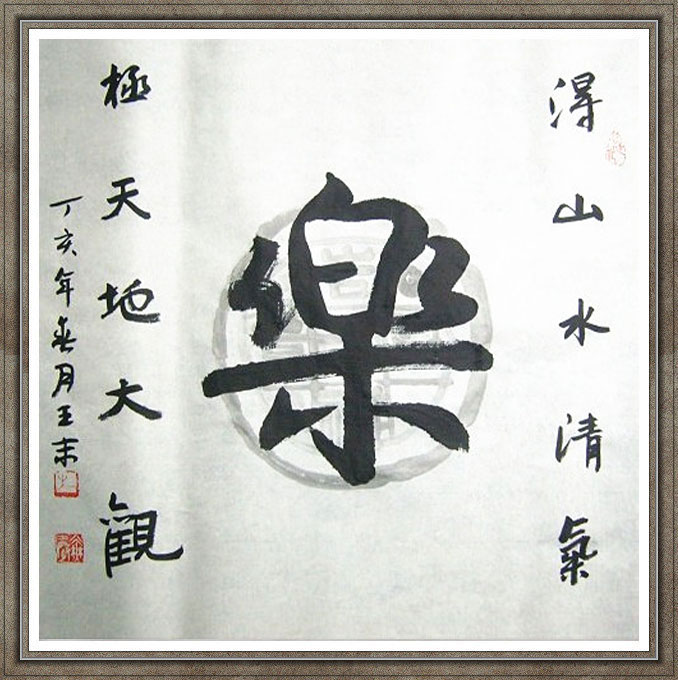 得山水清氣
樂
極天地大觀
丁亥年春月王未